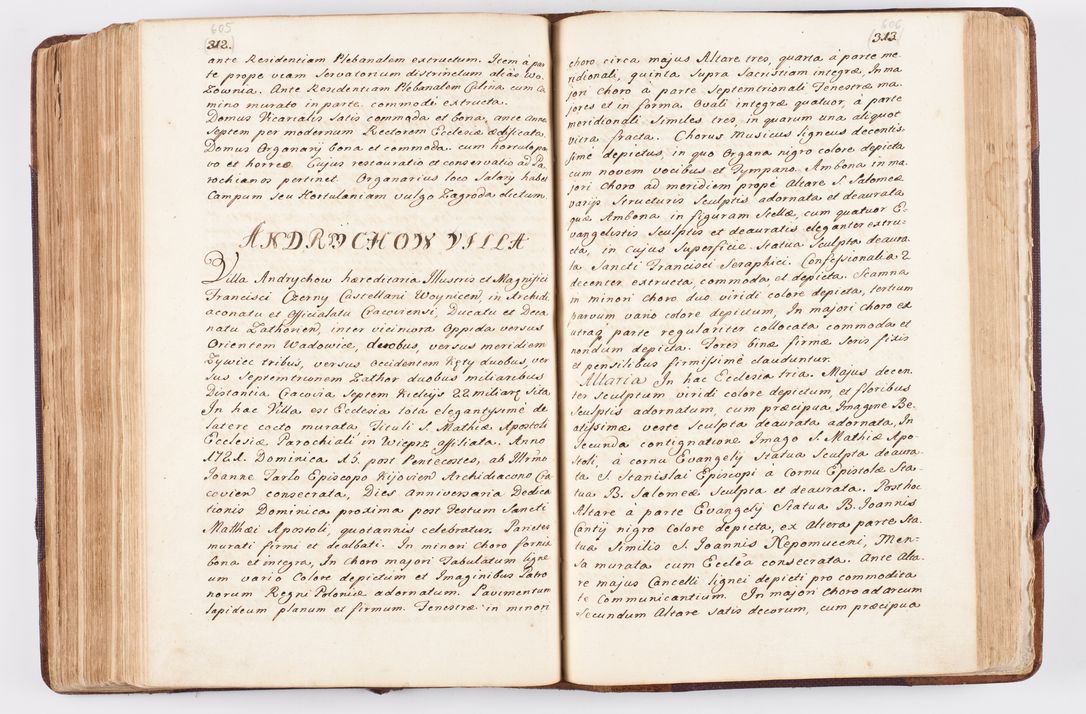 605
312.
ante Residentiam Plebanalem extructum. Item à par
te prope viam Servatorium distrinctum aliàs Wo-
zownia. Ante Residentiam Plebanalem Culina cum Ca
mino murato in parte commodè extructa.
Domus Vicarialis satis commoda et bona, ante annos
Septem per modernum Rectorem Ecclesiæ ædificata.
Domus Organarij bona et commoda cum hortulo par
vo et horreo. Cujus restauratio et conservatio ad Pa
rochianos pertinet. Organarius loco Salary habet
Campum seu Hortulaniam vulgo Zagroda dictum.
ANDRYCHOW VILLA
Villa Andrychow hæreditaria Illustris et Magnifici
Francisci Czerny Castellani Woynicen, in Archidi
aconatu et Officialatu Cracoviensi, Ducatu et Deca
natu Zathorien, inter viciniora Oppida versus
Orientem Wadowice, duobus, versus meridiem
Zywiec tribus, versus Occidentem Kęty duobus, ver
sus Septemtrionem Zathor duobus miliaribus
Distantia Cracovia Septem Kielcijs 22 miliare sita
In hac Villa est Ecclesia tota elegantissimè de
latere cocto murata, Tituli S. Mathiæ Apostoli
Ecclesiæ Parochiali in Wieprz affiliata. Anno
1721. Dominica 15. post Pentecostes, ab Illrmo
Joanne Tarlo Episcopo Kijovien Archidiacono Cra
covien consecrata, Dies Anniversaria Dedica
tionis Dominica proxima post Festum Sancti
Matthæi Apostoli, quotannis celebratur. Parietes
murati firmi et dealbati. In minori Choro fornix
bona et integra, In choro majori Tabulatum ligne
um vario Colore depictum et Imaginibus Patro
norum Regni Poloniæ adornatum. Pavimentum
lapideum planum et firmum. Fenestræ in minori
606
313.
choro circa majus Altare tres, quarta à parte me
ridionali, quinta supra Sacristiam integræ, In ma
jori Choro à parte Septemtrionali Fenestræ ma
jores et in forma Ovali integræ quatuor, à parte
meridionali Similes tres, in quarum una aliquot
vitra fracta. Chorus Musicus ligneus decentis-
simè depictus, in quo Organa nigro colore depicta
cum novem vocibus et Tympano. Ambona in ma
jori Choro ad meridiem prope Altare S. Salomeæ
varijs Structuris Sculptis adornata et deaurata
quæ Ambona in figuram Stellæ, cum quatuor E-
vangelistis Sculptis et deauratis eleganter extru-
cta, in cujus Superficie Statua Sculpta deaura
ta Sancti Francisci Seraphici. Confessionalia 2
decenter extructa, commoda et depicta. Scamna
in minori Choro duo viridi colore depicta, tertium
parvum vario colore depictum, In majori choro ex
utraq parte regulariter collocata commoda et
nondum depicta. Fores binæ firmæ Seris fixis
et pensilibus firmissimè clauduntur.
Altaria In hac Ecclesia tria. Majus decen
ter Sculptum viridi colore depictum, et floribus
Sculptis adornatum, cum præcipua Imagine Be-
atissimæ veste Sculpta deaurata adornata, In
Secunda contignatione Imago S. Mathiæ Apo-
stoli, à cornu Evangely Statua Sculpta deaura
ta S. Stanislai Episcopi à Cornu Epistolæ Sta-
tua B. Salomeæ Sculpta et deaurata. Post hoc
Altare à parte Evangely Statua B. Joannis
Cantij nigro Colore depicta, ex altera parte Sta
tua Similis S. Joannis Nepomuceni, Men-
sa murata cum Ecclea consecrata. Ante Alta
re majus Cancelli lignei depicti pro commodita
te Communicantium. In majori Choro ad arcum
Secundum Altare satis decorum, cum præcipua